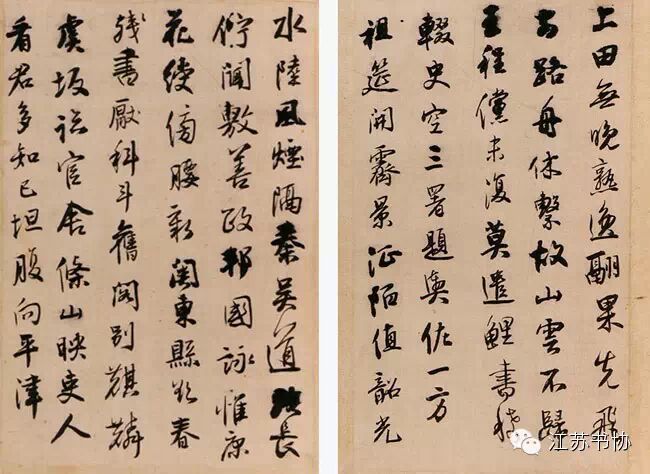 上田無晚熟逸翮果先飛
路舟休繫故山雲不歸
王程儻未復莫遣鯉書稀
輟史空三署題輿佐一方
祖筵開霽景征陌值韶光
水陸風煙隔秦吳道路長
佇聞敷善政邦國詠惟康
花綬傍腰新關東縣欲春
殘書厭科斗舊閣別麒麟
虞坂臨官舍條山映吏人
看君多知己坦腹向平津
江苏书协